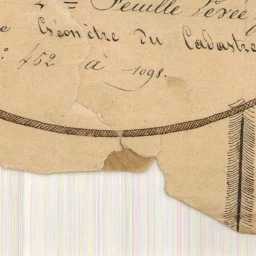 2= Feuille Levée
e Géomètre du Cadastre
452 à 1098.